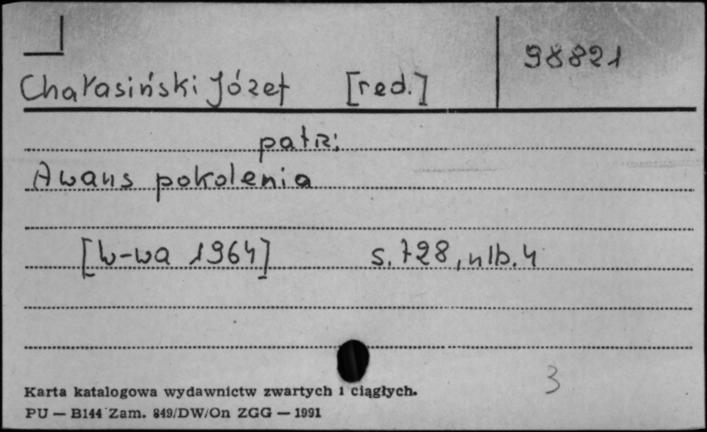 98821
Chałasiński Józef [red.]
patrz:
Awans pokolenia
[W-wa 1964] s. 728, nlb. 4
3
Karta katalogowa wydawnictw zwartych i ciągłych.
PU — B144 Zam. 849/DW/On ZGG — 1991